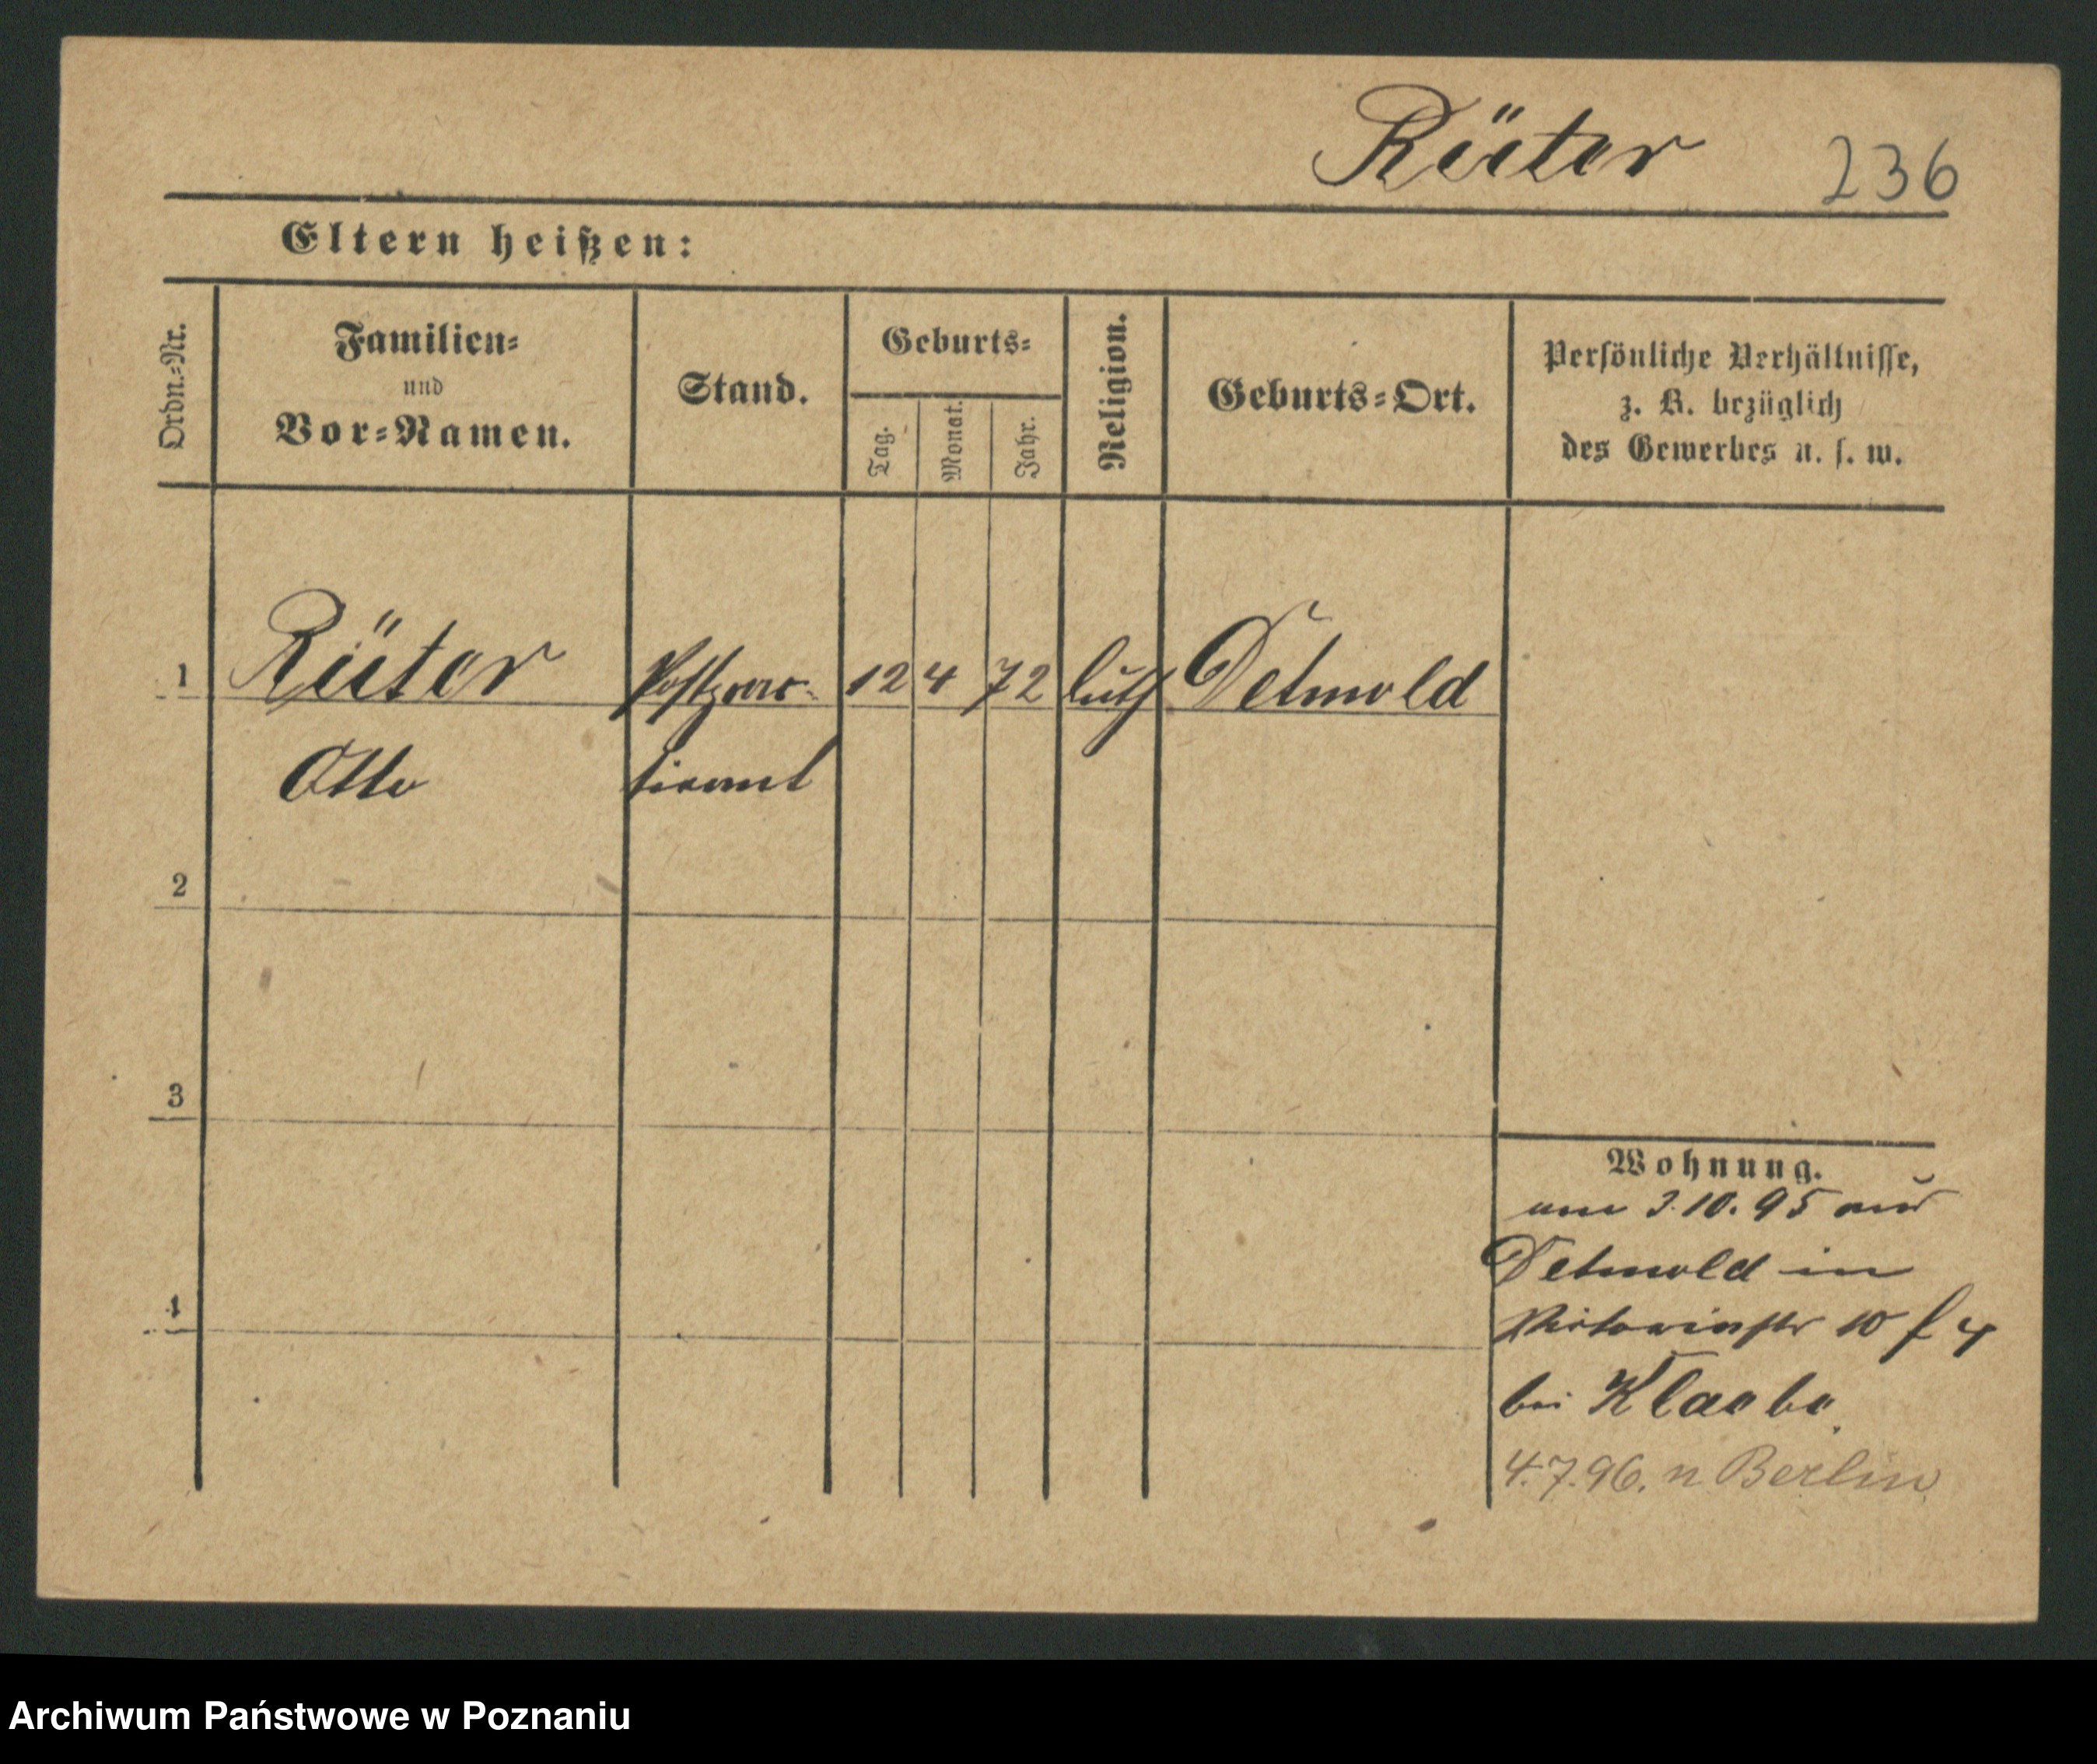 Rüter 236
Eltern heißen:
Ordn.-Nr.
Familien-
und
Vor-Namen.
Stand.
Geburts-
Tag.
Monat.
Jahr.
Religion.
Geburts-Ort.
Persönliche Verhältnisse,
z. B. bezüglich
des Gewerbes u. s. w.
1 Rüter 12 4 72 luth Detmold
Otto
2
3
4
Wohnung.
3.10.95 aus
Detmold in
Victoriastr 10
bei
4.7.96. n Berlin
Archiwum Państwowe w Poznaniu